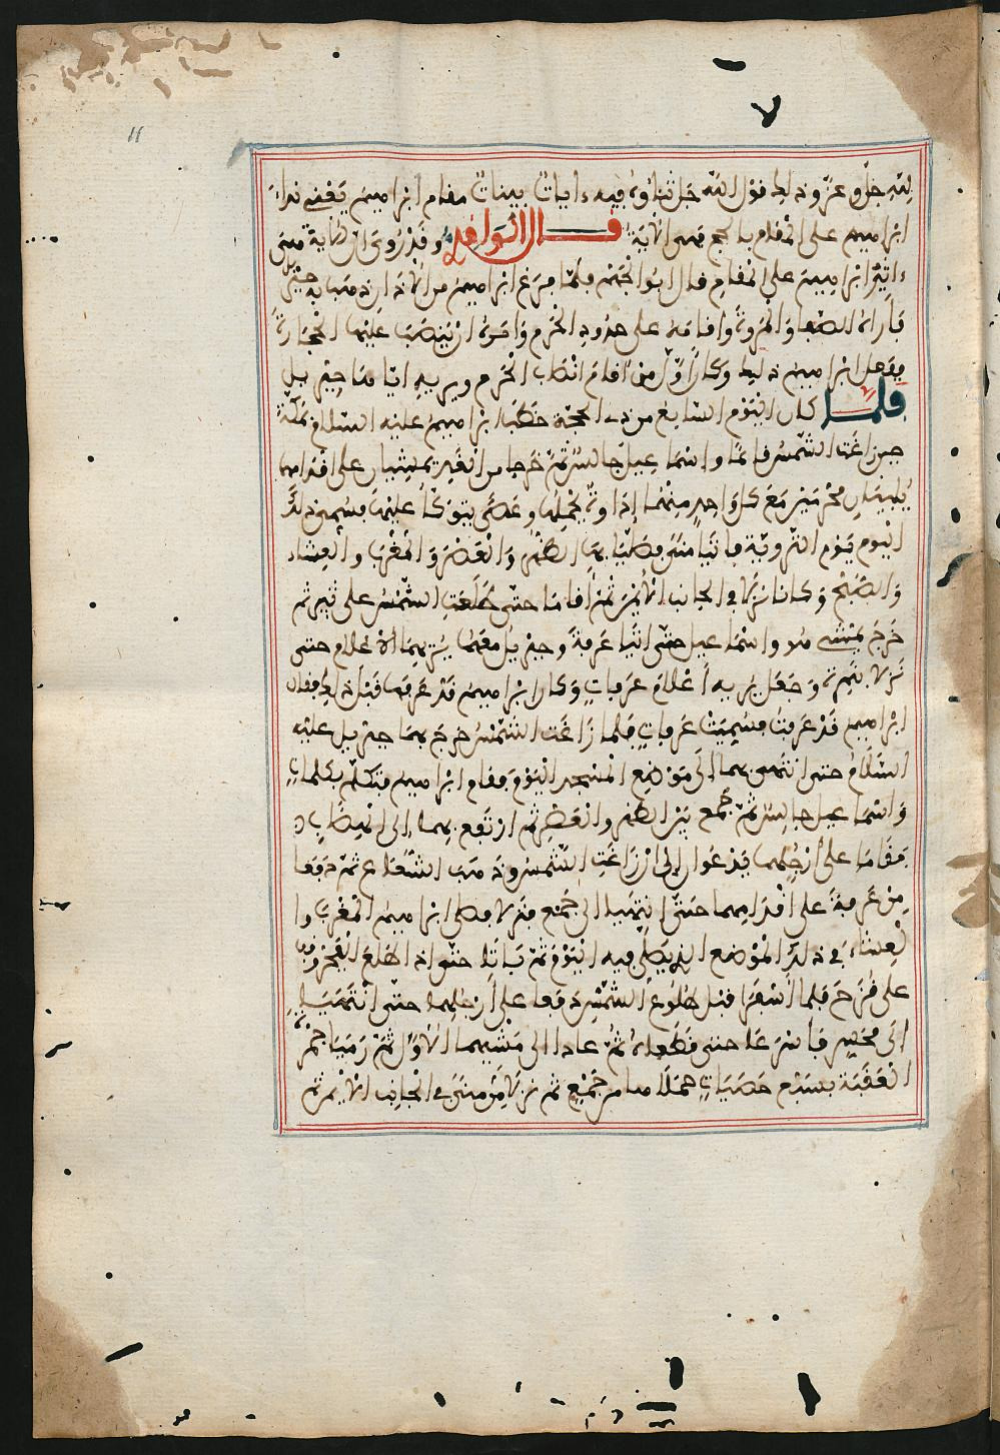 لله جل وعز وذلك قول الله جل ثناؤه فيه ءايات بينات مقام إبراهيم يعني نداء
إبراهيم على المقام بالحج فهي الآية قال الواقدي وقد روي أن الآية هي
ءاثر إبراهيم على المقام قال أبو الجهم فلما فرغ إبراهيم من الأذان ذهب به جبريل
فأراه الصفا والمروة وأقامه على حدود الحرم وأمره أن ينصب عليها الحجارة
ففعل إبراهيم ذلك وكان أول من أقام أنصاب الحرم ويريه إياها جبريل
فلما كان اليوم السابع من ذي الحجة خطب إبراهيم عليه السلام بمكة
حين زاغت الشمس قائما وإسماعيل جالس ثم خرجا من الغد يمشيان على أقدامهما
يلبيان محرمين مع كل واحد منهما إداوة يحملها وعصى يتوكأ عليها فسمي ذلك
اليوم يوم التروية فأتيا منى فصليا بها الظهر والعصر والمغرب والعشاء
والصبح وكانا نزلا في الجانب الأيمن ثم أقاما حتى طلعت الشمس على ثبير ثم
خرج يمشي هو وإسماعيل حتى أتيا عرفة وجبريل معهما يريهما الأعلام حتى
نزلا بنمرة وجعل يريه أعلام عرفات وكان إبراهيم قد عرفها قبل ذلك فقال
إبراهيم قد عرفت فسميت عرفات فلما زاغت الشمس خرج بهما جبريل عليه
السلام حتى انتهى بهما إلى موضع المسجد اليوم فقام إبراهيم فتكلم بكلمات
وإسماعيل جالس ثم جمع بين الظهر والعصر ثم ارتفع بهما إلى الهضاب
فقاما على أرجلهما يدعوان إلى أن زاغت الشمس وذهب الشعاع ثم دفعا
من عرفة على أقدامهما حتى انتهيا إلى جمع فنزلا فصلى إبراهيم المغرب وا
لعشاء في ذلك الموضع الذي يصلى فيه اليوم ثم باتا حتى إذا طلع الفجر وقفا
على قزح فلما أسفرا قبل طلوع الشمس دفعا على أرجلهما حتى انتهيا
إلى محسر فأسرعا حتى قطعاه ثم عادا إلى مشيهما الأول ثم رميا جمرة
العقبة بسبع حصيات حملاها من جمع ثم نزلا من منى في الجانب الأيمن ثم